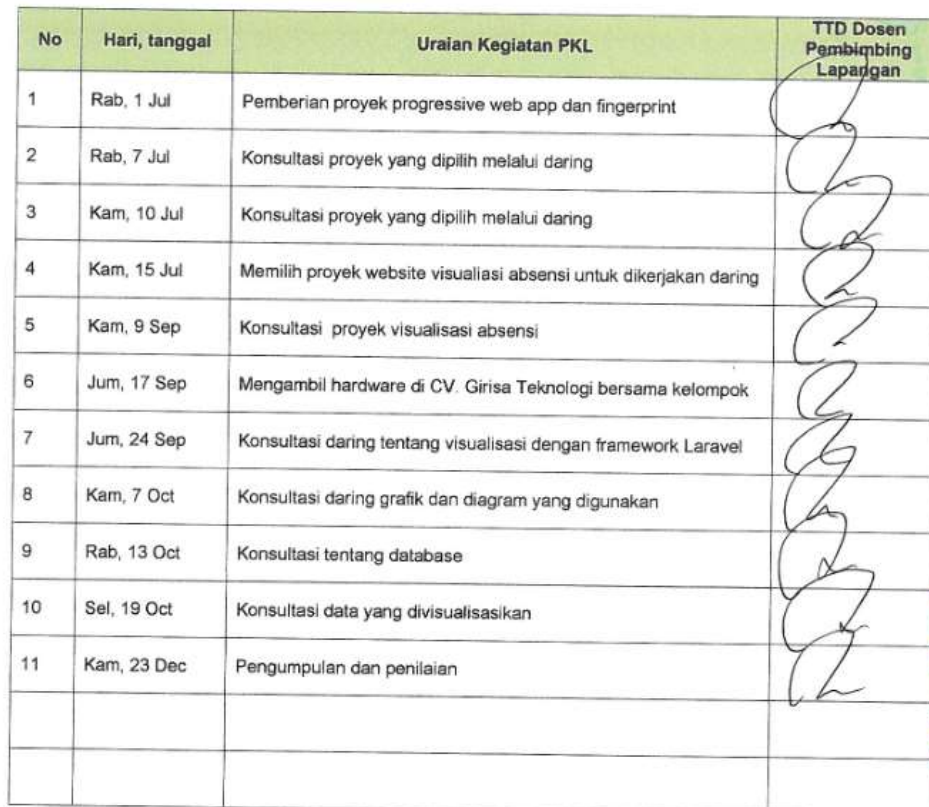 No Hari, tanggal Uraian Kegiatan PKL TTD Dosen
Pembimbing
Lapangan
1 Rab, 1 Jul Pemberian proyek progressive web app dan fingerprint
2 Rab, 7 Jul Konsultasi proyek yang dipilih melalui daring
3 Kam, 10 Jul Konsultasi proyek yang dipilih melalui daring
4 Kam, 15 Jul Memilih proyek website visualiasi absensi untuk dikerjakan daring
5 Kam, 9 Sep Konsultasi proyek visualisasi absensi
6 Jum, 17 Sep Mengambil hardware di CV. Girisa Teknologi bersama kelompok
7 Jum, 24 Sep Konsultasi daring tentang visualisasi dengan framework Laravel
8 Kam, 7 Oct Konsultasi daring grafik dan diagram yang digunakan
9 Rab, 13 Oct Konsultasi tentang database
10 Sel, 19 Oct Konsultasi data yang divisualisasikan
11 Kam, 23 Dec Pengumpulan dan penilaian